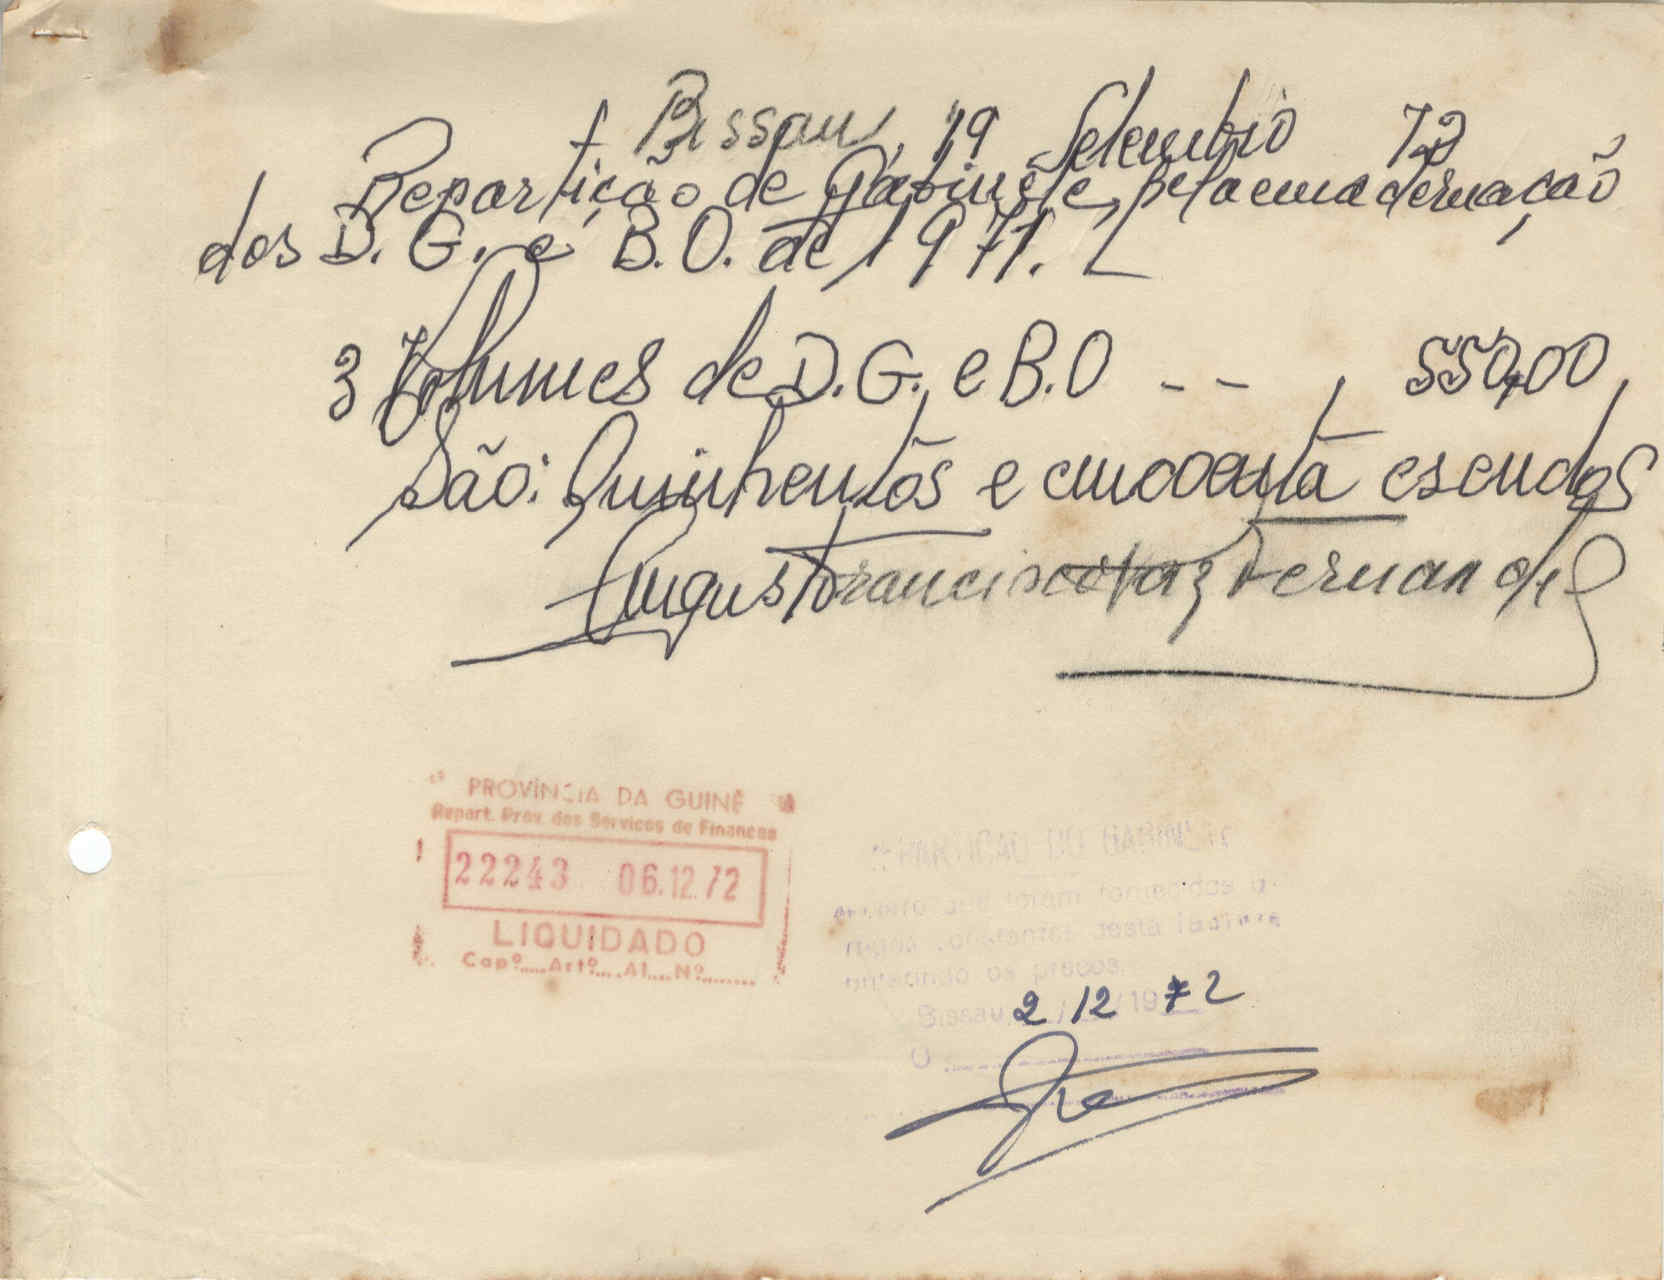 Bissau, 19 Setembro 72
Repartição de Gabinête, pela emcadernação
dos D. G. e B.O. de 1971.
3 Volumes de D.G. e B.O - - 550,00
São: Quinhentos e cincoenta escudos
Augusto Francisco Vaz Fernandes
PROVÍNCIA DA GUINÉ
Repart. Prov. dos Serviços de Finanças
22243 06.12.72
LIQUIDADO
Capº..... Artº.... Al..... Nº........
REPARTIÇÃO DO GABINETE
que foram fornecidos
constantes desta factura
os preços.
Bissau, 2 / 12 / 1972
O